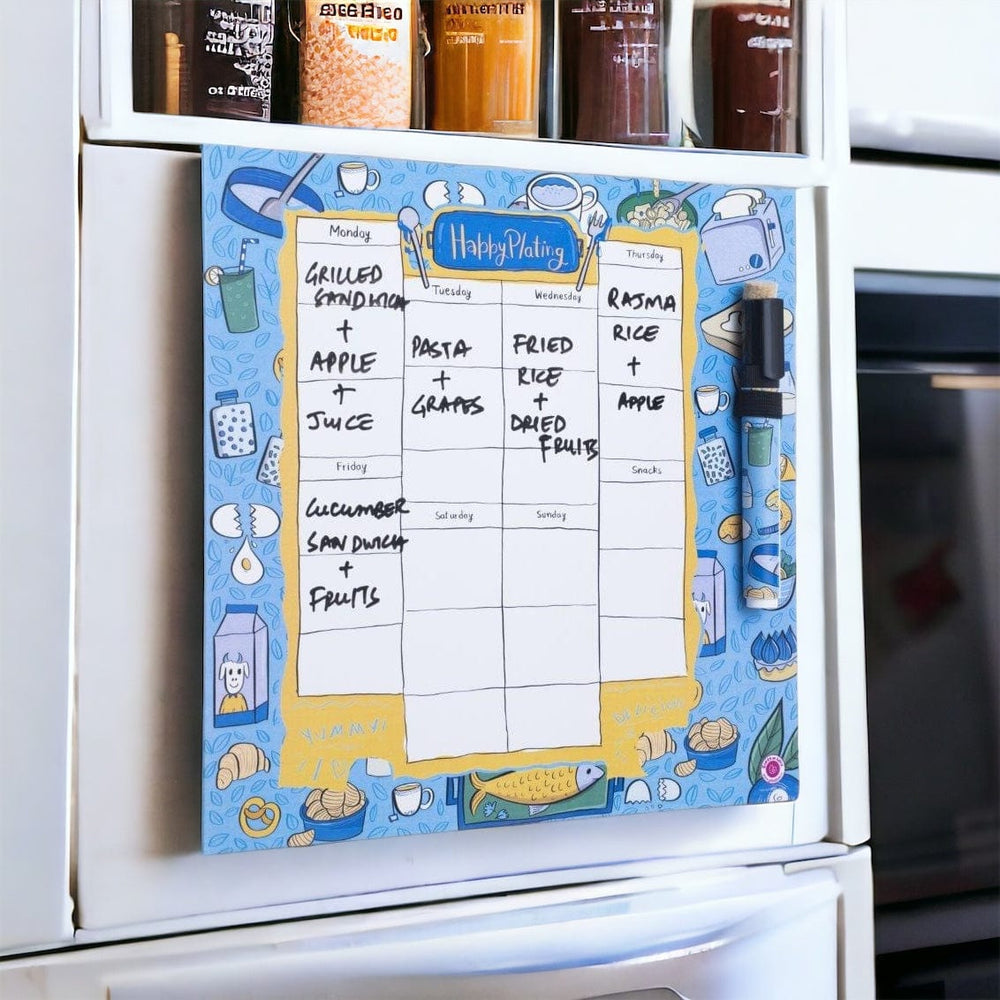 Happy Plating
Monday
GRILLED
SANDWICH
+
APPLE
+
JUICE
Tuesday
PASTA
+
GRAPES
Wednesday
FRIED
RICE
+
DRIED
FRUITS
Thursday
RAJMA
RICE
+
APPLE
Friday
CUCUMBER
SANDWICH
+
FRUITS
Saturday
Sunday
Snacks
YUMMY!
DELICIOUS